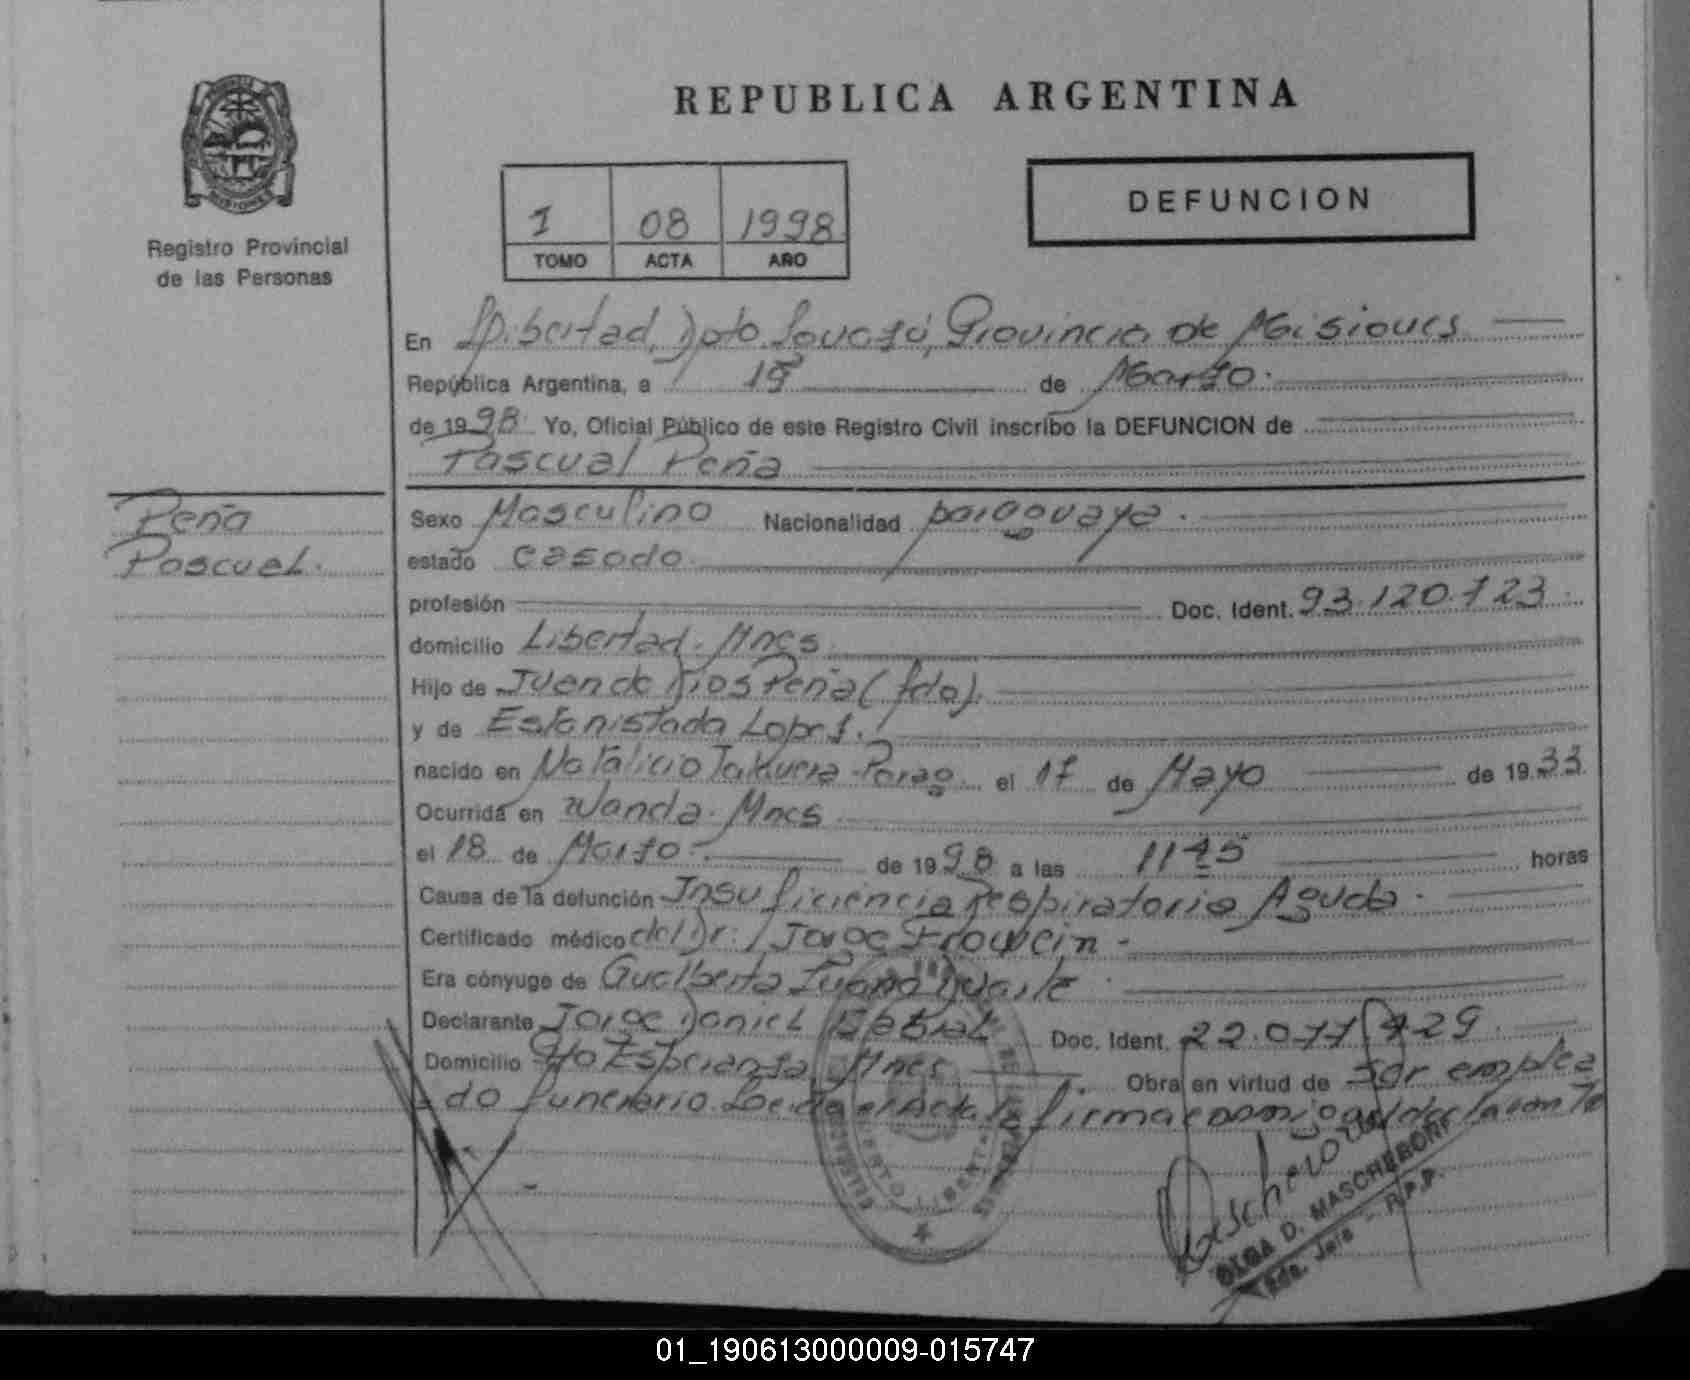 REPUBLICA ARGENTINA
DEFUNCION
1 08 1998
TOMO ACTA AÑO
MISIONES
Registro Provincial
de las Personas
En Libertad, Dpto. Iguazú, Provincia de Misiones
República Argentina, a 19 de Marzo.
de 1998 Yo, Oficial Público de este Registro Civil inscribo la DEFUNCION de
Pascual Peña
Peña
Pascual.
Sexo Masculino Nacionalidad paraguaya.
estado casado.
profesión Doc. Ident. 93.120.123.
domicilio Libertad. Mnes
Hijo de Juan de Dios Peña (fdo).
y de Estanislada Lopez.
nacido en Natalicio Talavera-Parag. el 17 de Mayo de 1933
Ocurrida en Wanda. Mnes
el 18 de Marzo. de 1998 a las 1145 horas
Causa de la defunción Insuficiencia Respiratoria Aguda.
Certificado médico del Dr. Jorge
Era cónyuge de Gualberta Duarte
Declarante Jorge Daniel Cabral Doc. Ident. 22.077.729.
Domicilio Pto Esperanza, Mnes. Obra en virtud de ser emplea
do funerario. Leida el Acta la firma conmigo el declarante
LIBERTAD
OLGA D. MASCHERONI
Eda. Jefa - R.P.P.
01_190613000009-015747